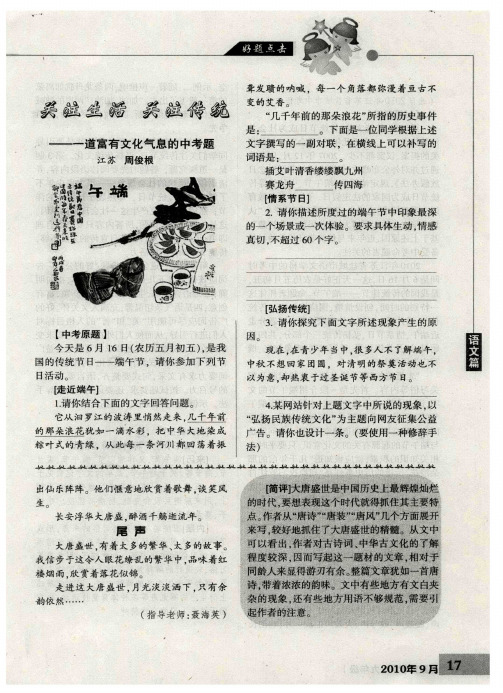 好题点击
关注生活 关注传统
——一道富有文化气息的中考题
江苏 周俊根
端午
【中考原题】
今天是 6 月 16 日(农历五月初五),是我
国的传统节日——端午节，请你参加下列节
日活动。
[走近端午]
1.请你结合下面的文字回答问题。
它从汨罗江的波涛里悄然走来,几千年前
的那朵浪花犹如一滴水彩，把中华大地染成
粽叶式的青绿，从此每一条河川都回荡着振
聋发聩的呐喊，每一个角落都弥漫着亘古不
变的艾香。
“几千年前的那朵浪花”所指的历史事件
是: 。下面是一位同学根据上述
文字撰写的一副对联，在横线上可以补写的
词语是: 。
插艾叶清香缕缕飘九州
赛龙舟 传四海
[情系节日]
2. 请你描述所度过的端午节中印象最深
的一个场景或一次体验。要求具体生动,情感
真切,不超过 60 个字。
[弘扬传统]
3. 请你探究下面文字所述现象产生的原
因。
现在,在青少年当中,很多人不了解端午,
中秋不想回家团圆，对清明的祭奠活动也不
以为意,却热衷于过圣诞节等西方节日。
4.某网站针对上题文字中所说的现象,以
“弘扬民族传统文化”为主题向网友征集公益
广告。请你也设计一条。(要使用一种修辞手
法)
语文篇
出仙乐阵阵。他们惬意地欣赏着歌舞,谈笑风
生。
长安浮华大唐盛,醉酒千觞逝流年。
尾声
大唐盛世,有着太多的繁华、太多的故事。
我信步于这令人眼花缭乱的繁华中,品味着红
楼烟雨,欣赏着落花似锦。
走进这大唐盛世,月光淡淡洒下,只有余
韵依然……
(指导老师:聂海英)
[简评]大唐盛世是中国历史上最辉煌灿烂
的时代,要想表现这个时代就得抓住其主要特
点。作者从“唐诗”“唐装”“唐风”几个方面展开
来写,较好地抓住了大唐盛世的精髓。从文中
可以看出,作者对古诗词、中华古文化的了解
程度较深,因而写起这一题材的文章,相对于
同龄人来显得游刃有余。整篇文章犹如一首唐
诗,带着浓浓的韵味。文中有些地方有文白夹
杂的现象,还有些地方用语不够规范,需要引
起作者的注意。
2010年 9 月 17